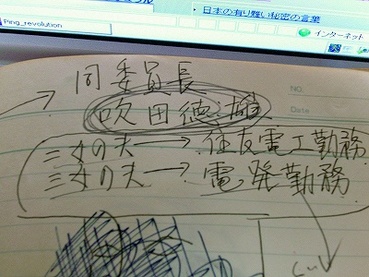 Ping_revolution
日本の有り難い秘密の言葉
インターネット
NO.
Date
同委員長
吹田徳雄
三女の夫→住友電工勤務
三女の夫→電発勤務